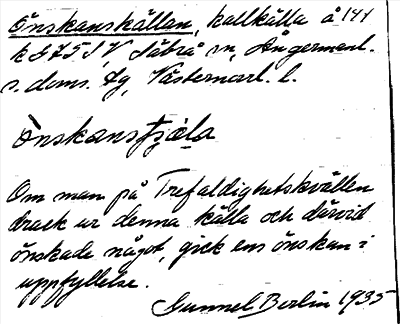 Önskanskällan, kallkälla å 144
k G 7 S I V Säbrå sn, Ångermanl.
s. doms. lg, Västernorrl. l.
Önskanstjäla
Om man på Trefaldighetskvällen
drack ur denna källa och därvid
önskade något, gick ens önskan i
uppfyllelse.
Gunnel Berlin 1935